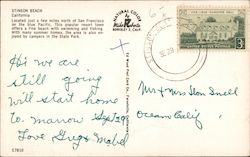 STINSON BEACH
California
Located just a few miles north of San Francisco
on the blue Pacific. This popular resort town
offers a fine beach with swimming and fishing.
With many summer homes, the area is also en-
joyed by campers in the State Park.
NATURAL COLOR
BERKELEY 2, CALIF.
3
Hi we are
still going
will start home
to. marrow
Love Greg & Mabel
Mr & Mrs Don Snell
Oceano Calif
C7810